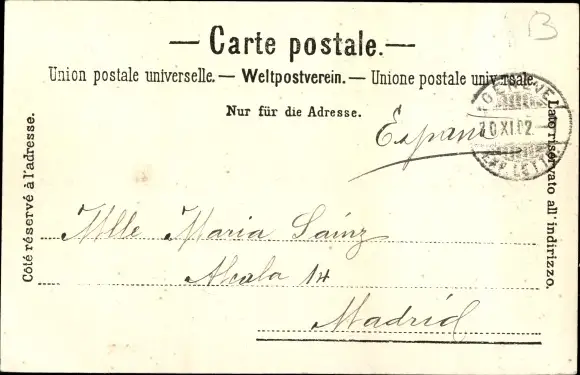 B
— Carte postale. —
Union postale universelle. — Weltpostverein. — Unione postale universale.
Nur für die Adresse.
España
GENÈVE
10 XI.02
EXP. LETTR.
Côté réservé à l'adresse.
Lato riservato all' indirizzo.
Mlle Maria Sainz
Alcala 14
Madrid